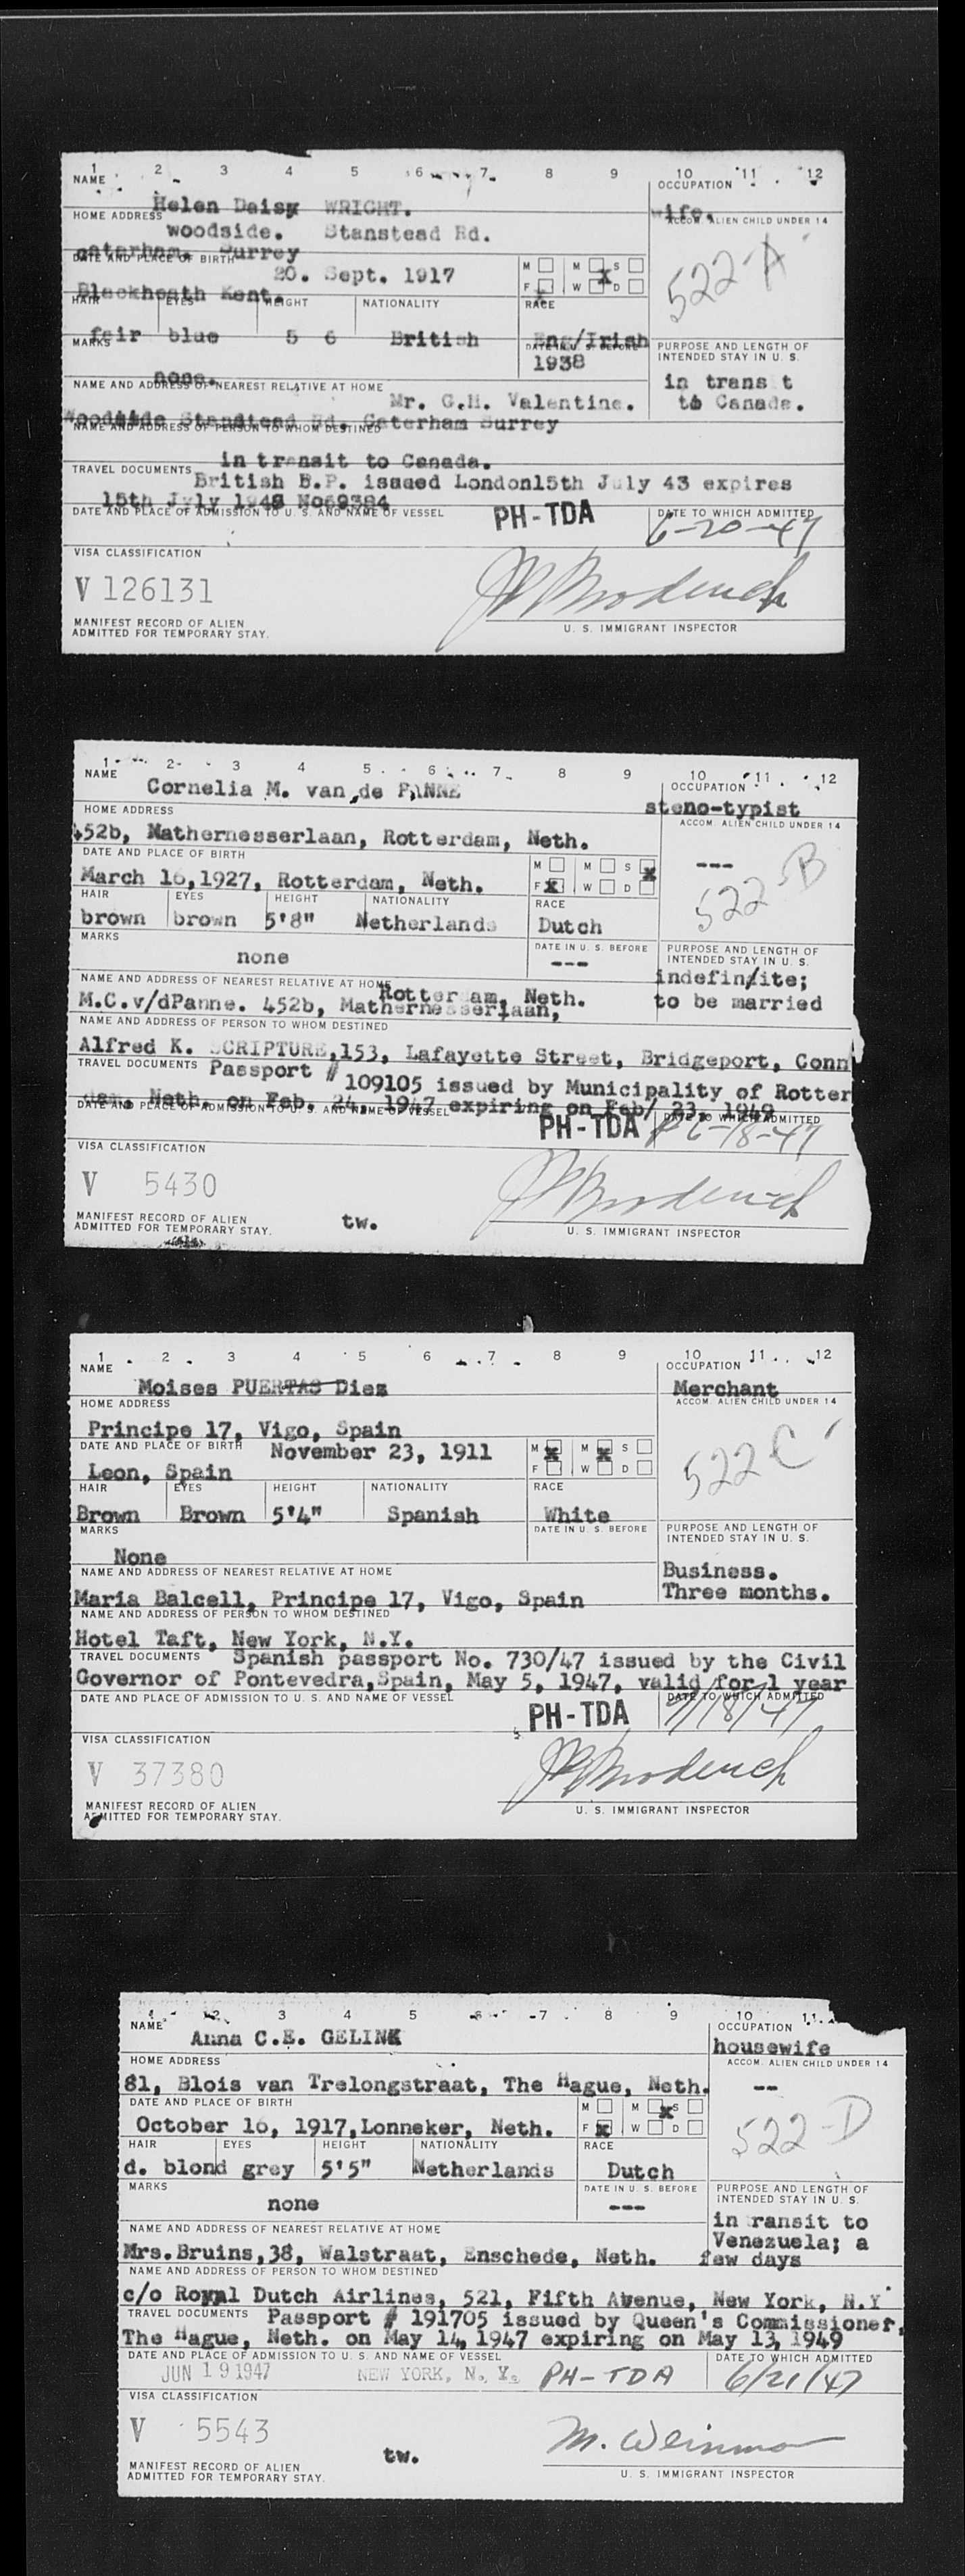 1 2 3 4 5 6 7 8 9 10 11 12
NAME OCCUPATION
Helen Daisy WRIGHT. wife.
HOME ADDRESS ACCOM. ALIEN CHILD UNDER 14
woodside. Stanstead Rd.
caterham. Surrey
DATE AND PLACE OF BIRTH
20. Sept. 1917 M M X S
Blackheath Kent. F X W D
522-A
HAIR EYES HEIGHT NATIONALITY RACE
fair blue 5 6 British Eng/Irish
MARKS DATE IN U. S. BEFORE PURPOSE AND LENGTH OF INTENDED STAY IN U. S.
1938
none. in trans t
NAME AND ADDRESS OF NEAREST RELATIVE AT HOME
Mr. G.H. Valentine. to Canada.
Woodside Stanstead Rd. Caterham Surrey
NAME AND ADDRESS OF PERSON TO WHOM DESTINED
in transit to Canada.
TRAVEL DOCUMENTS
British B.P. issued London15th July 43 expires
15th July 1948 No69384
DATE AND PLACE OF ADMISSION TO U. S. AND NAME OF VESSEL PH-TDA DATE TO WHICH ADMITTED
6-20-47
VISA CLASSIFICATION
V 126131
MANIFEST RECORD OF ALIEN
ADMITTED FOR TEMPORARY STAY. U. S. IMMIGRANT INSPECTOR
1 2 3 4 5 6 7 8 9 10 11 12
NAME OCCUPATION
Cornelia M. van de PANNE steno-typist
HOME ADDRESS ACCOM. ALIEN CHILD UNDER 14
452b, Mathernesserlaan, Rotterdam, Neth. ---
DATE AND PLACE OF BIRTH M M S X
March 16,1927, Rotterdam, Neth. F X W D
522-B
HAIR EYES HEIGHT NATIONALITY RACE
brown brown 5'8" Netherlands Dutch
MARKS DATE IN U. S. BEFORE PURPOSE AND LENGTH OF INTENDED STAY IN U. S.
none --- indefin/ite;
NAME AND ADDRESS OF NEAREST RELATIVE AT HOME
Rotter am, Neth.
M.C.v/dPanne. 452b, Mathernesserlaan, to be married
NAME AND ADDRESS OF PERSON TO WHOM DESTINED
Alfred K. SCRIPTURE,153, Lafayette Street, Bridgeport, Conn
TRAVEL DOCUMENTS Passport # 109105 issued by Municipality of Rotter
dam, Neth. on Feb. 24, 1947 expiring on Feb/ 23, 1949
DATE AND PLACE OF ADMISSION TO U. S. AND NAME OF VESSEL PH-TDA DATE TO WHICH ADMITTED
6-18-47
VISA CLASSIFICATION
V 5430
MANIFEST RECORD OF ALIEN
ADMITTED FOR TEMPORARY STAY. tw. U. S. IMMIGRANT INSPECTOR
1 2 3 4 5 6 7 8 9 10 11 12
NAME OCCUPATION
Moises PUERTAS Diez Merchant
HOME ADDRESS ACCOM. ALIEN CHILD UNDER 14
Principe 17, Vigo, Spain
DATE AND PLACE OF BIRTH November 23, 1911 M X M X S
Leon, Spain F W D
522 C
HAIR EYES HEIGHT NATIONALITY RACE
Brown Brown 5'4" Spanish White
MARKS DATE IN U. S. BEFORE PURPOSE AND LENGTH OF INTENDED STAY IN U. S.
None Business.
NAME AND ADDRESS OF NEAREST RELATIVE AT HOME Three months.
Maria Balcell, Principe 17, Vigo, Spain
NAME AND ADDRESS OF PERSON TO WHOM DESTINED
Hotel Taft, New York, N.Y.
TRAVEL DOCUMENTS Spanish passport No. 730/47 issued by the Civil
Governor of Pontevedra,Spain, May 5, 1947, valid for 1 year
DATE AND PLACE OF ADMISSION TO U. S. AND NAME OF VESSEL PH-TDA DATE TO WHICH ADMITTED
9/18/47
VISA CLASSIFICATION
V 37380
MANIFEST RECORD OF ALIEN
ADMITTED FOR TEMPORARY STAY. U. S. IMMIGRANT INSPECTOR
1 2 3 4 5 6 7 8 9 10 11
NAME OCCUPATION
Anna C.E. GELINK housewife
HOME ADDRESS ACCOM. ALIEN CHILD UNDER 14
81, Blois van Trelongstraat, The Hague, Neth. --
DATE AND PLACE OF BIRTH M M X S
October 16, 1917,Lonneker, Neth. F X W D
522-D
HAIR EYES HEIGHT NATIONALITY RACE
d. blond grey 5'5" Netherlands Dutch
MARKS DATE IN U. S. BEFORE PURPOSE AND LENGTH OF INTENDED STAY IN U. S.
none --- in ransit to
NAME AND ADDRESS OF NEAREST RELATIVE AT HOME Venezuela; a
Mrs.Bruins,38, Walstraat, Enschede, Neth. few days
NAME AND ADDRESS OF PERSON TO WHOM DESTINED
c/o Royal Dutch Airlines, 521, Fifth Avenue, New York, N.Y
TRAVEL DOCUMENTS Passport # 191705 issued by Queen's Commissioner,
The Hague, Neth. on May 14, 1947 expiring on May 13, 1949
DATE AND PLACE OF ADMISSION TO U. S. AND NAME OF VESSEL DATE TO WHICH ADMITTED
JUN 19 1947 NEW YORK, N. Y. PH-TDA 6/21/47
VISA CLASSIFICATION
V 5543
M. Weinman
MANIFEST RECORD OF ALIEN
ADMITTED FOR TEMPORARY STAY. tw. U. S. IMMIGRANT INSPECTOR